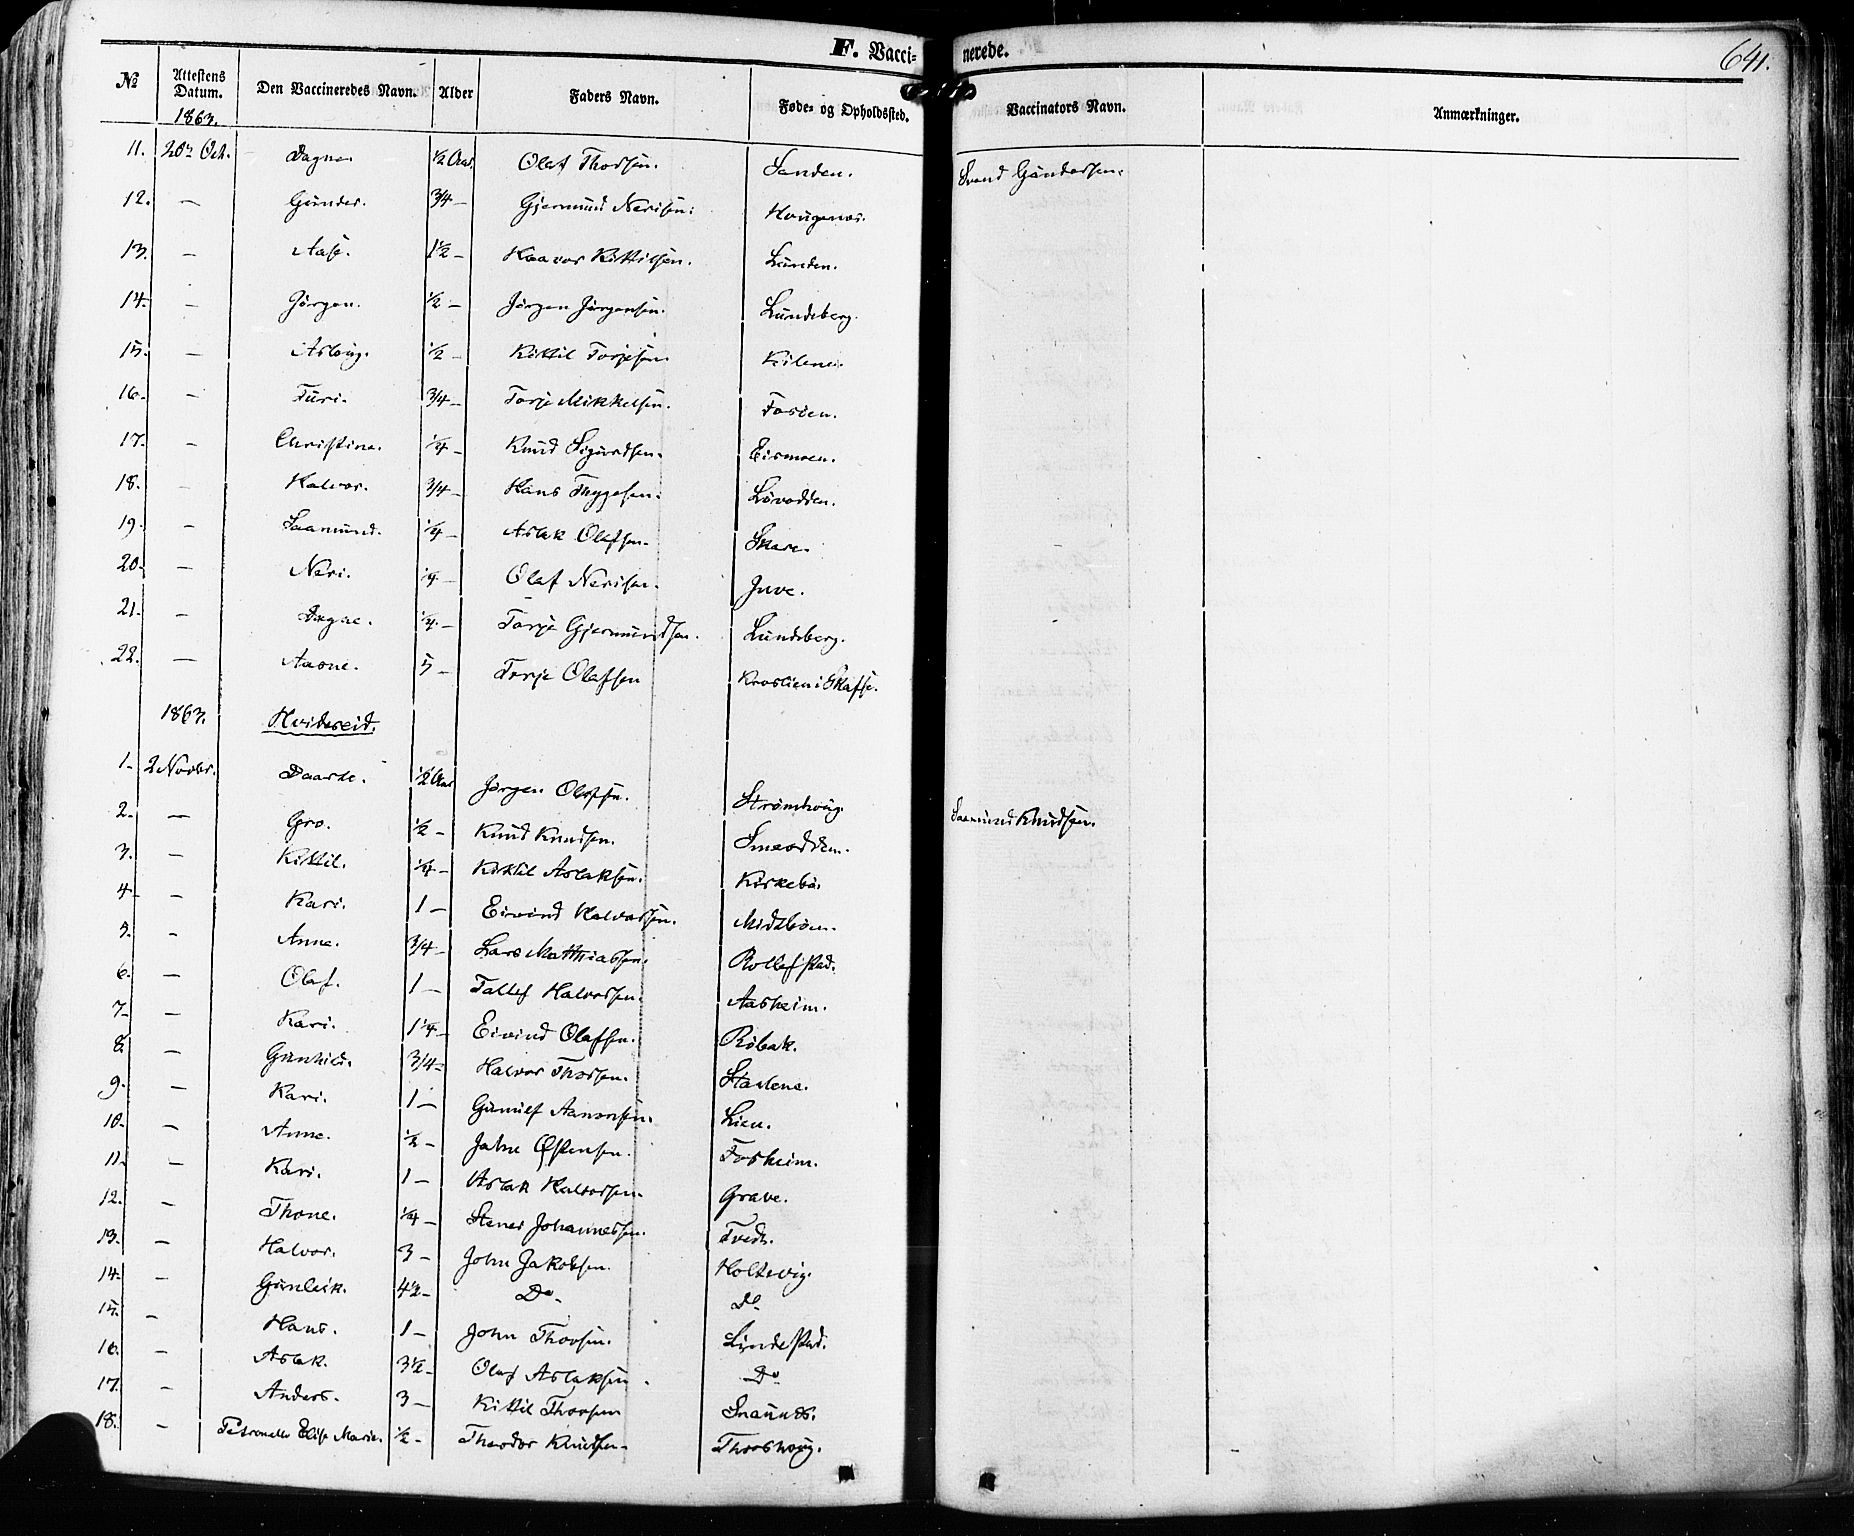 F. Vacci- nerede. 641.
№ Attestens Datum. Den Vaccineredes Navn. Alder Faders Navn. Føde- og Opholdssted. Vaccinators Navn. Anmærkninger.
1863.
11. 20de Oct. Dagne. 1/2 Aar Olaf Thorsen. Sanden. Svend Gundersen.
12. — Gunder. 3/4 — Gjermund Nerisen. Haugenes.
13. — Aase. 1 1/2 — Haavor Kittilsen. Lunden.
14. — Jørgen. 1/2 — Jørgen Jørgensen. Lundeberg.
15. — Aslaug. 1/2 — Kittil Torjesen. Kilene.
16. — Turi. 3/4 — Torje Mikkelsen. Fosien.
17. — Christine. 1/4 — Knud Sigurdsen. Eismoen.
18. — Halvor. 3/4 — Hans Thygesen. Løvodden.
19. — Saamund. 1/4 — Aslak Olafsen. Skare.
20. — Neri. 1/4 — Olaf Nerisen. Juve.
21. — Dagne. 1/4 — Torje Gjermundsen. Lundeberg.
22. — Aasne. 5 — Torje Olafsen Kroslien i Skafse.
1863. Hvideseid.
1. 2 Novbr. Daarte. 1/2 Aar Jørgen Olafsen. Strømhaug. Saamund Knudsen.
2. — Gro. 1/2 — Knud Knudsen. Smeodden.
3. — Kittil. 1/4 — Kittil Aslaksen. Kirkebø.
4. — Kari. 1 — Eivind Halvorsen. Midtbøen.
5. — Anne. 3/4 — Lars Matthiassen. Rollefstad.
6. — Olaf. 1 — Tallef Halvorsen. Aasheim.
7. — Kari. 1 1/4 — Eivind Olafsen. Robak.
8. — Gunhild. 3/4 — Halvor Thorsen. Stadene.
9. — Kari. 1 — Gunulf Aanonsen. Lien.
10. — Anne. 1/2 — John Østensen. Fosheim.
11. — Kari. 1 — Aslak Halvorsen. Grave.
12. — Thone. 1/4 — Stener Johannessen. Tvedt.
13. — Halvor. 3 — John Jakobsen. Holtevig.
14. — Gunleik. 4 1/2 — Do — Do
15. — Hans. 1 — John Thorsen. Lindestad.
16. — Aslak. 3 1/2 — Olaf Aslaksen. Do
17. — Anders. 3 — Kittil Thorsen
18. — Petronelle Elise Marie. 1/2 — Theodor Knudsen. Thorshaug.